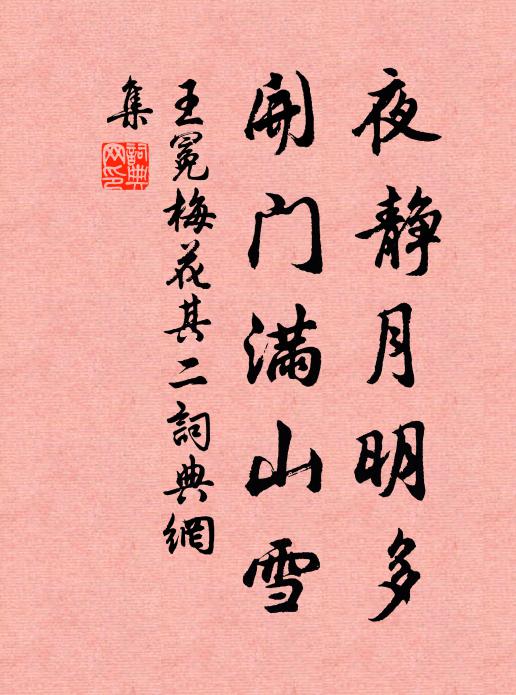 夜静月明多
開门满山雪
王冕梅花其二詞典網
集
詞典
网印